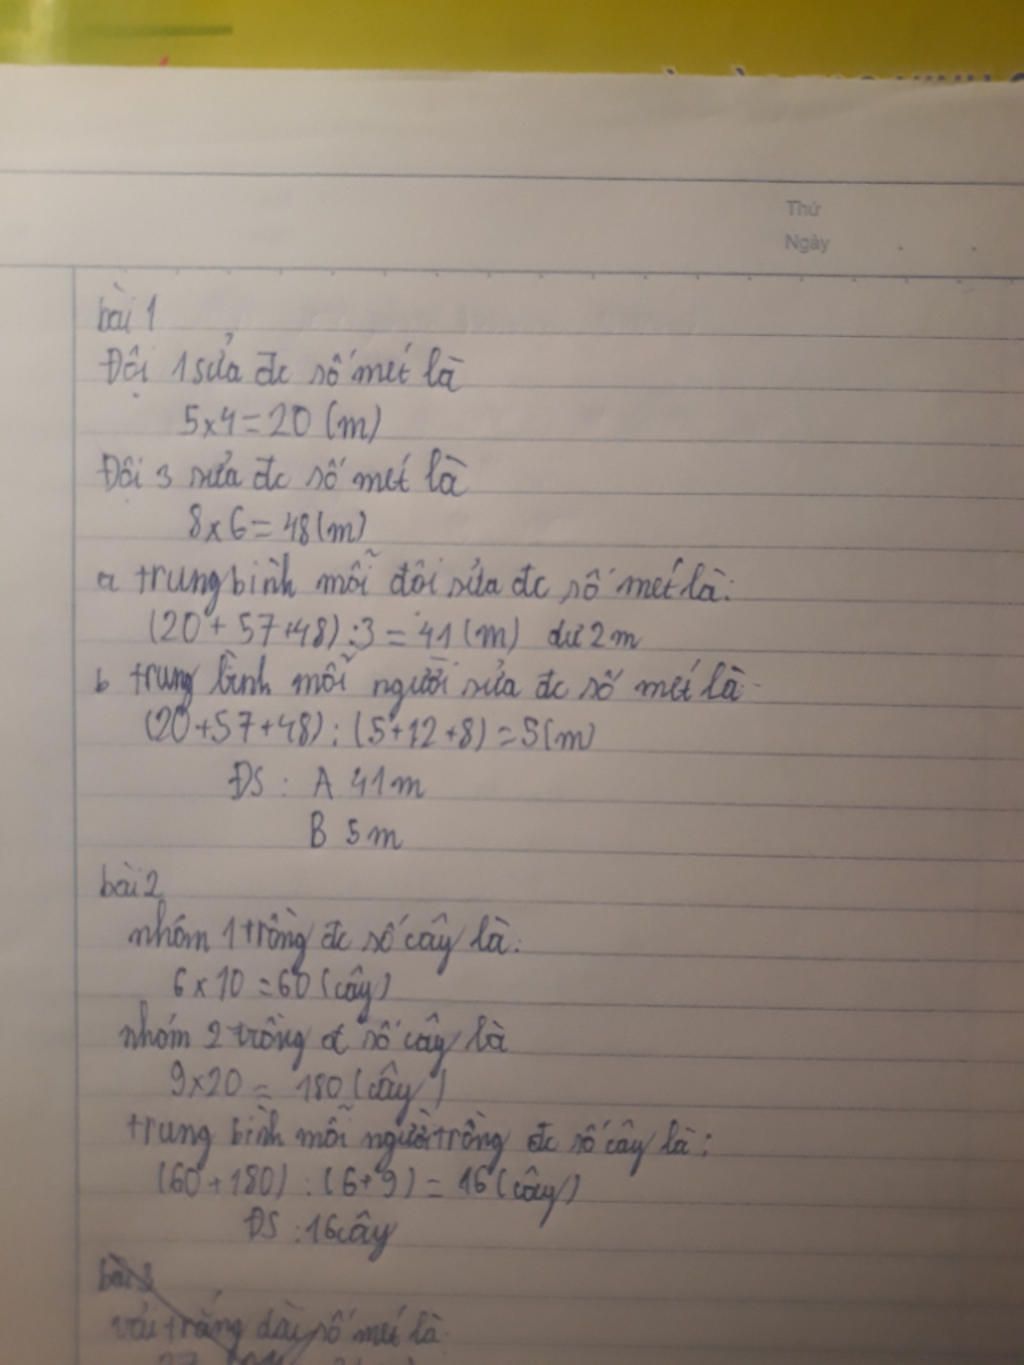 Thứ
Ngày
bài 1
Đội 1 sửa đc số mét là
5x4=20 (m)
Đội 3 sửa đc số mét là
8x6=48(m)
a trung bình mỗi đôi sửa đc số mét là:
(20+57+48):3=41(m) dư 2m
b trung bình mỗi người sửa đc số mét là
(20+57+48):(5+12+8)=5(m)
ĐS: A 41m
B 5m
bài 2
nhóm 1 trồng đc số cây là:
6x10=60(cây)
nhóm 2 trồng đc số cây là
9x20=180(cây)
trung bình mỗi người trồng đc số cây là:
(60+180):(6+9)=16(cây)
ĐS:16cây
bài 3
vải trắng dài số mét là